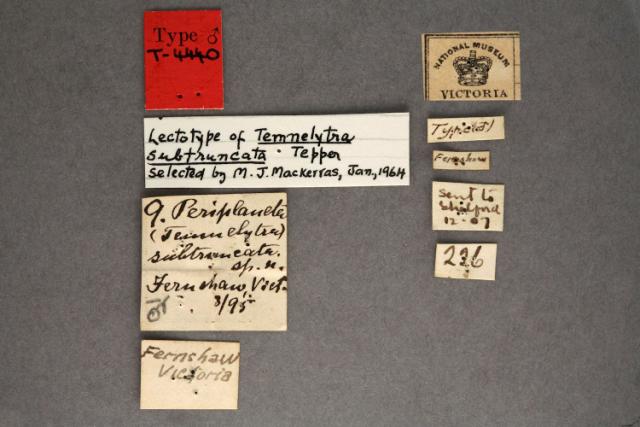 Type ♂
T-4440
Lectotype of Temnelytra
subtruncata Tepper
selected by M. J. Mackerras, Jan., 1964
9. Periplaneta
(Temnelytra)
subtruncata.
sp. n.
Fernshaw, Vict.
8/95
Fernshaw
Victoria
NATIONAL MUSEUM
VICTORIA
Fernshaw
Sent to
Shelford
12-07
226